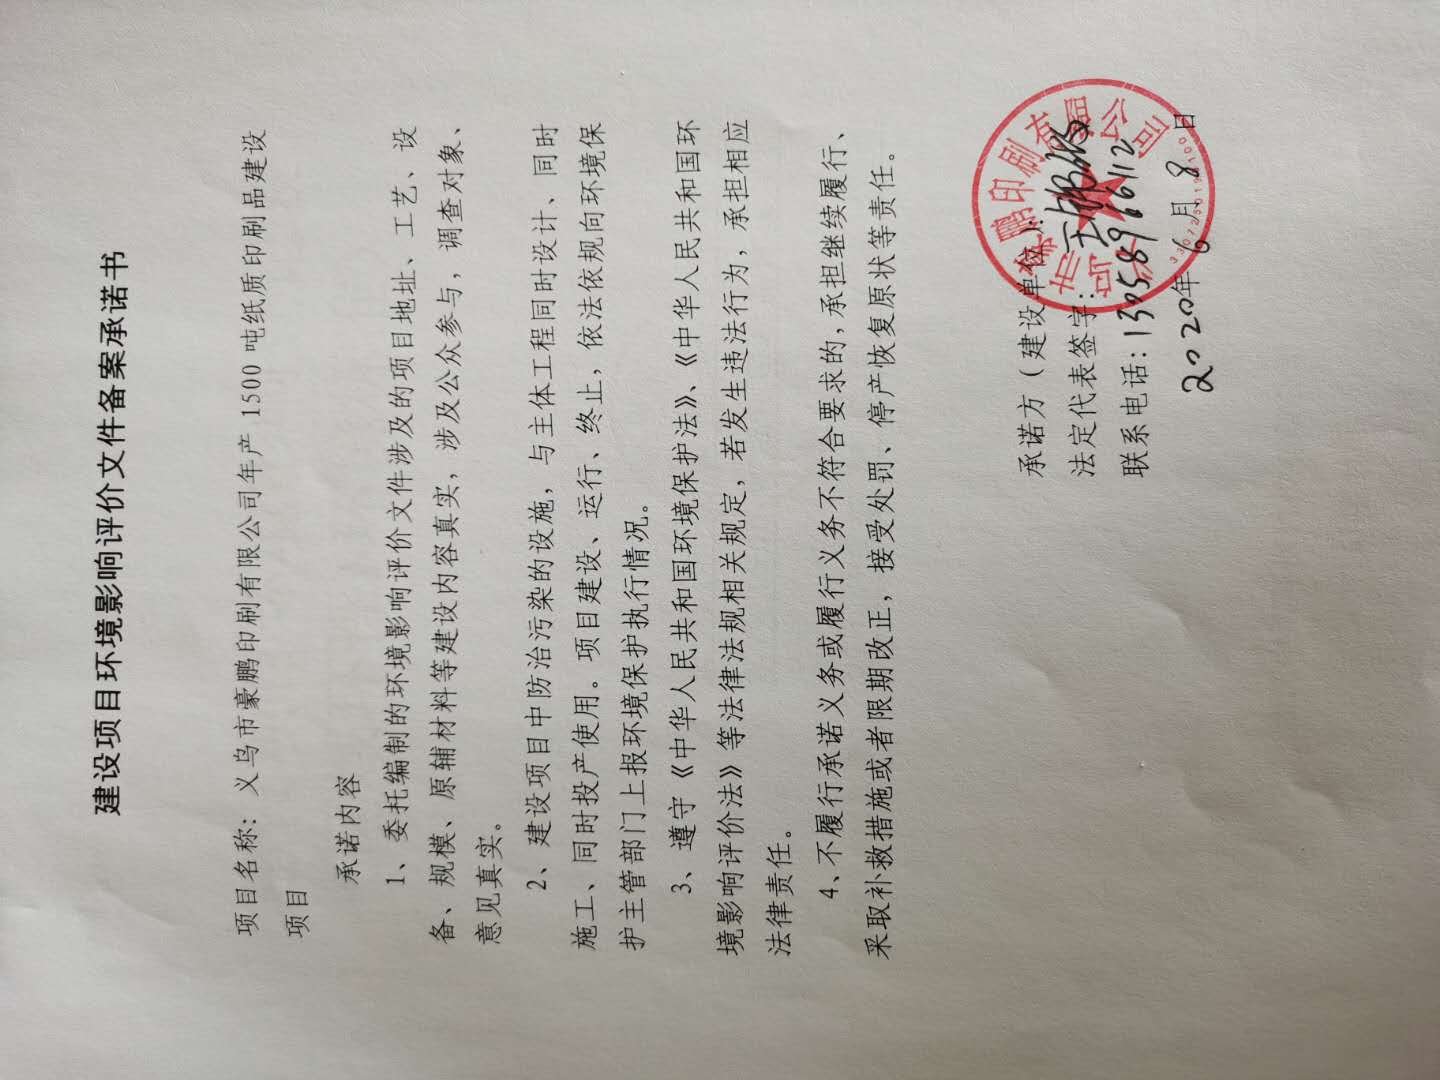 建设项目环境影响评价文件备案承诺书
项目名称：义乌市豪鹏印刷有限公司年产 1500 吨纸质印刷品建设
项目
承诺内容
1、委托编制的环境影响评价文件涉及的项目地址、工艺、设
备、规模、原辅材料等建设内容真实，涉及公众参与，调查对象、
意见真实。
2、建设项目中防治污染的设施，与主体工程同时设计、同时
施工、同时投产使用。项目建设、运行、终止，依法依规向环境保
护主管部门上报环境保护执行情况。
3、遵守《中华人民共和国环境保护法》、《中华人民共和国环
境影响评价法》等法律法规相关规定，若发生违法行为，承担相应
法律责任。
4、不履行承诺义务或履行义务不符合要求的，承担继续履行、
采取补救措施或者限期改正，接受处罚、停产恢复原状等责任。
承诺方（建设单位）：
义乌市豪鹏印刷有限公司
法定代表签字：
联系电话：13958966112
2020年6月8日